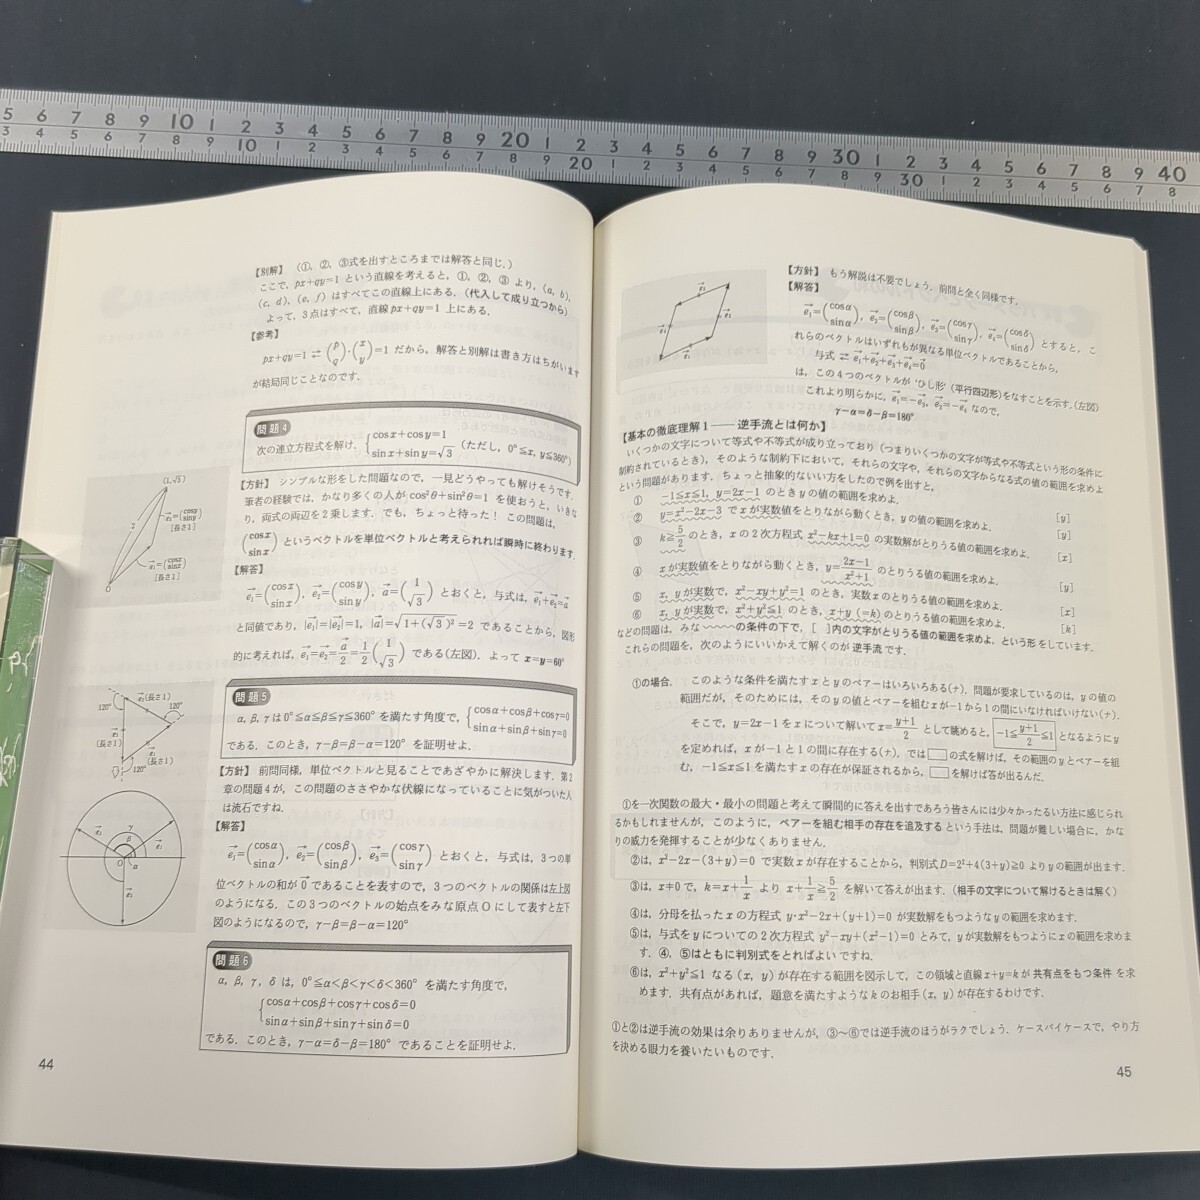 【別解】 (①, ②, ③式を出すところまでは解答と同じ.)
ここで, px+qy=1 という直線を考えると, ①, ②, ③ より, (a, b),
(c, d), (e, f) はすべてこの直線上にある. (代入して成り立つから)
よって, 3点はすべて, 直線 px+qy=1 上にある.
【参考】
px+qy=1 ⇄ (p q)・(x y)=1 だから, 解答と別解は書き方はちがいます
が結局同じことなのです.
問題4
次の連立方程式を解け. {cosx+cosy=1 sinx+siny=√3 (ただし, 0°≦x, y≦360°)
【方針】 シンプルな形をした問題なので, 一見どうやっても解けそうです.
筆者の経験では, かなり多くの人が cos²θ+sin²θ=1 を使おうと, いきな
り, 両式の両辺を2乗します. でも, ちょっと待った! この問題は,
(cosx sinx) というベクトルを単位ベクトルと考えられれば瞬時に終わります.
【解答】
e₁=(cosx sinx), e₂=(cosy siny), a=(1 √3) とおくと, 与式は, e₁+e₂=a
と同値であり, |e₁|=|e₂|=1, |a|=√1+(√3)²=2 であることから, 図形
的に考えれば, e₁=e₂=a/2=1/2(1 √3) である(左図). よって x=y=60°
(1, √3)
2
e₂=(cosy siny)
[長さ1]
e₁=(cosx sinx)
[長さ1]
O
問題5
α, β, γ は 0°≦α≦β≦γ≦360° を満たす角度で, {cosα+cosβ+cosγ=0 sinα+sinβ+sinγ=0
である. このとき, γ−β=β−α=120° を証明せよ.
【方針】 前問同様, 単位ベクトルと見ることであざやかに解決します. 第2
章の問題4が, この問題のささやかな伏線になっていることに気がついた人
は流石ですね.
【解答】
e₁=(cosα sinα), e₂=(cosβ sinβ), e₃=(cosγ sinγ) とおくと, 与式は, 3つの単
位ベクトルの和が 0 であることを表すので, 3つのベクトルの関係は左上図
のようになる. この3つのベクトルの始点をみな原点Oにして表すと左下
図のようになるので, γ−β=β−α=120°
(長さ1)
120°
120°
(長さ1)
(長さ1)
120°
γ
β
α
O
問題6
α, β, γ, δ は, 0°≦α<β<γ<δ<360° を満たす角度で,
{cosα+cosβ+cosγ+cosδ=0
sinα+sinβ+sinγ+sinδ=0
である. このとき, γ−α=δ−β=180° であることを証明せよ.
44
【方針】 もう解説は不要でしょう. 前問と全く同様です.
【解答】
e₁=(cosα sinα), e₂=(cosβ sinβ), e₃=(cosγ sinγ), e₄=(cosδ sinδ) とすると, こ
れらのベクトルはいずれもが異なる単位ベクトルであることから,
与式 ⇄ e₁+e₂+e₃+e₄=0
は, この4つのベクトルが‘ひし形’(平行四辺形)をなすことを示す. (左図)
これより明らかに, e₁=−e₃, e₂=−e₄ なので,
γ−α=δ−β=180°
【基本の徹底理解1 —— 逆手流とは何か】
いくつかの文字について等式や不等式が成り立っており (つまりいくつかの文字が等式や不等式という形の条件に
制約されているとき), そのような制約下において, それらの文字や, それらの文字からなる式の値の範囲を求めよ
という問題があります. ちょっと抽象的ないい方をしたので例を出すと,
① −1≦x≦1, y=2x−1 のとき y の値の範囲を求めよ. [y]
② y=x²−2x−3 で x が実数値をとりながら動くとき, y の値の範囲を求めよ. [y]
③ k≧5/2 のとき, x の2次方程式 x²−kx+1=0 の実数解がとりうる値の範囲を求めよ. [x]
④ x が実数値をとりながら動くとき, y=2x−1/x²+1 のとりうる値の範囲を求めよ. [y]
⑤ x, y が実数で, x²−xy+y²=1 のとき, 実数 x のとりうる値の範囲を求めよ. [x]
⑥ x, y が実数で, x²+y²≦1 のとき, x+y (=k) のとりうる値の範囲を求めよ. [k]
などの問題は, みな 〜〜〜 の条件の下で, [ ]内の文字がとりうる値の範囲を求めよ, という形をしています.
これらの問題を, 次のようにいいかえて解くのが 逆手流 です.
①の場合. このような条件を満たす x と y のペアーはいろいろある(ナ). 問題が要求しているのは, y の値の
範囲だが, そのためには, その y の値とペアーを組む x が−1から1の間にいなければいけない(ナ).
そこで, y=2x−1 を x について解いて x=y+1/2 として眺めると, −1≦y+1/2≦1 となるように y
を定めれば, x が−1と1の間に存在する(ナ). では □ の式を解けば, その範囲の y とペアーを組
む, −1≦x≦1 を満たす x の存在が保証されるから, □ を解けば答が出るんだ.
①を一次関数の最大・最小の問題と考えて瞬間的に答えを出すであろう皆さんには少々かったるい方法に感じられ
るかもしれませんが, このように, ペアーを組む相手の存在を追及する という手法は, 問題が難しい場合に, かな
りの威力を発揮することが少なくありません.
②は, x²−2x−(3+y)=0 で実数 x が存在することから, 判別式 D=2²+4(3+y)≧0 より y の範囲が出ます.
③は, x≠0 で, k=x+1/x より x+1/x≧5/2 を解いて答えが出ます. (相手の文字について解けるときは解く)
④は, 分母を払った x の方程式 y・x²−2x+(y+1)=0 が実数解をもつような y の範囲を求めます.
⑤は, 与式を y についての2次方程式 y²−xy+(x²−1)=0 とみて, y が実数解をもつように x の範囲を求めま
す. ④, ⑤はともに判別式をとればよい ですね.
⑥は, x²+y²≦1 なる (x, y) が存在する範囲を図示して, この領域と直線 x+y=k が 共有点をもつ条件 を求
めます. 共有点があれば, 題意を満たすような k のお相手 (x, y) が存在するわけです.
①と②は逆手流の効果は余りありませんが, ③〜⑥では逆手流のほうがラクでしょう. ケースバイケースで, やり方
を決める眼力を養いたいものです.
45